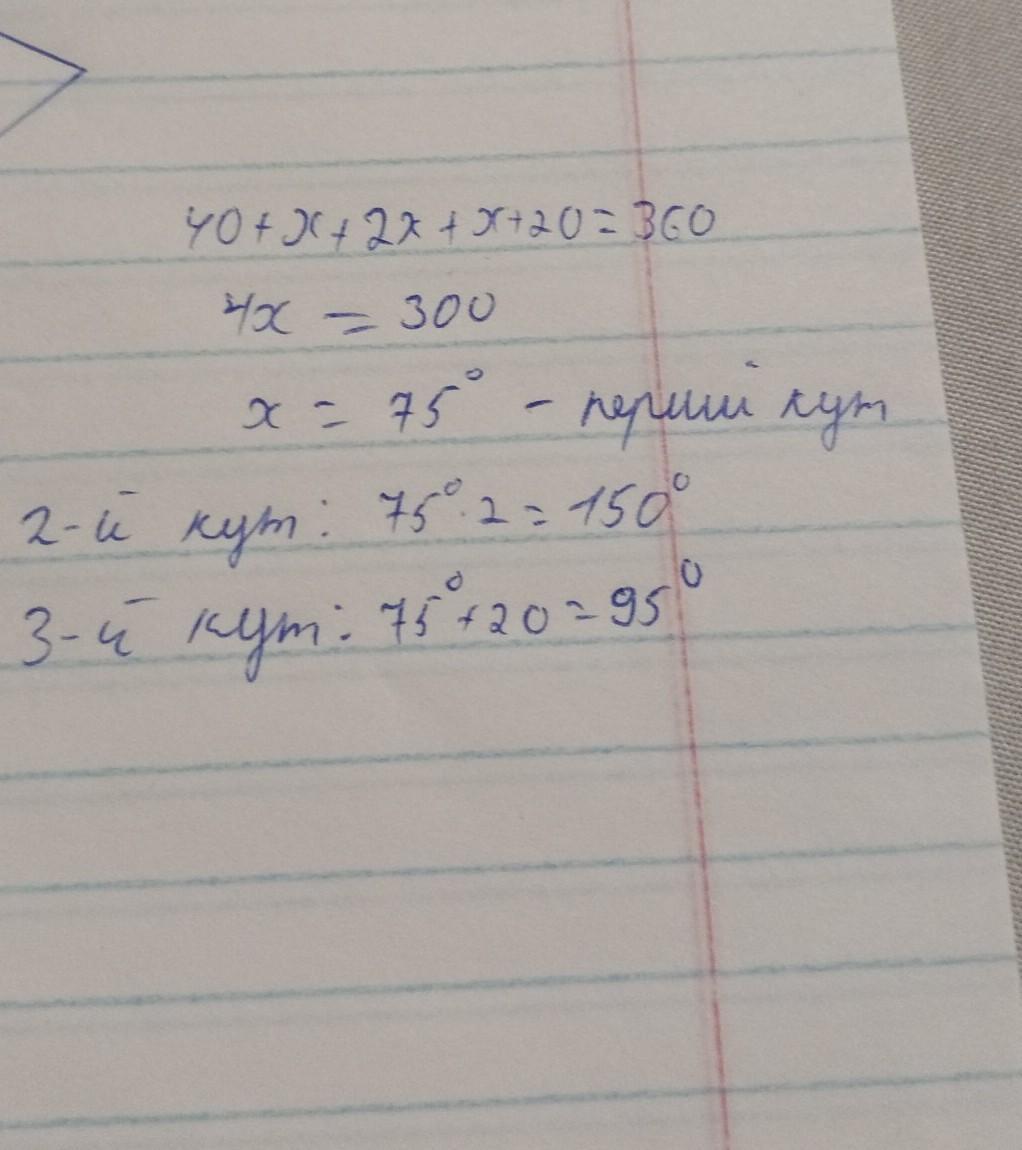 40+x+2x+x+20=360
4x = 300
x = 75° - перший кут
2-й кут: 75°·2=150°
3-й кут: 75°+20=95°